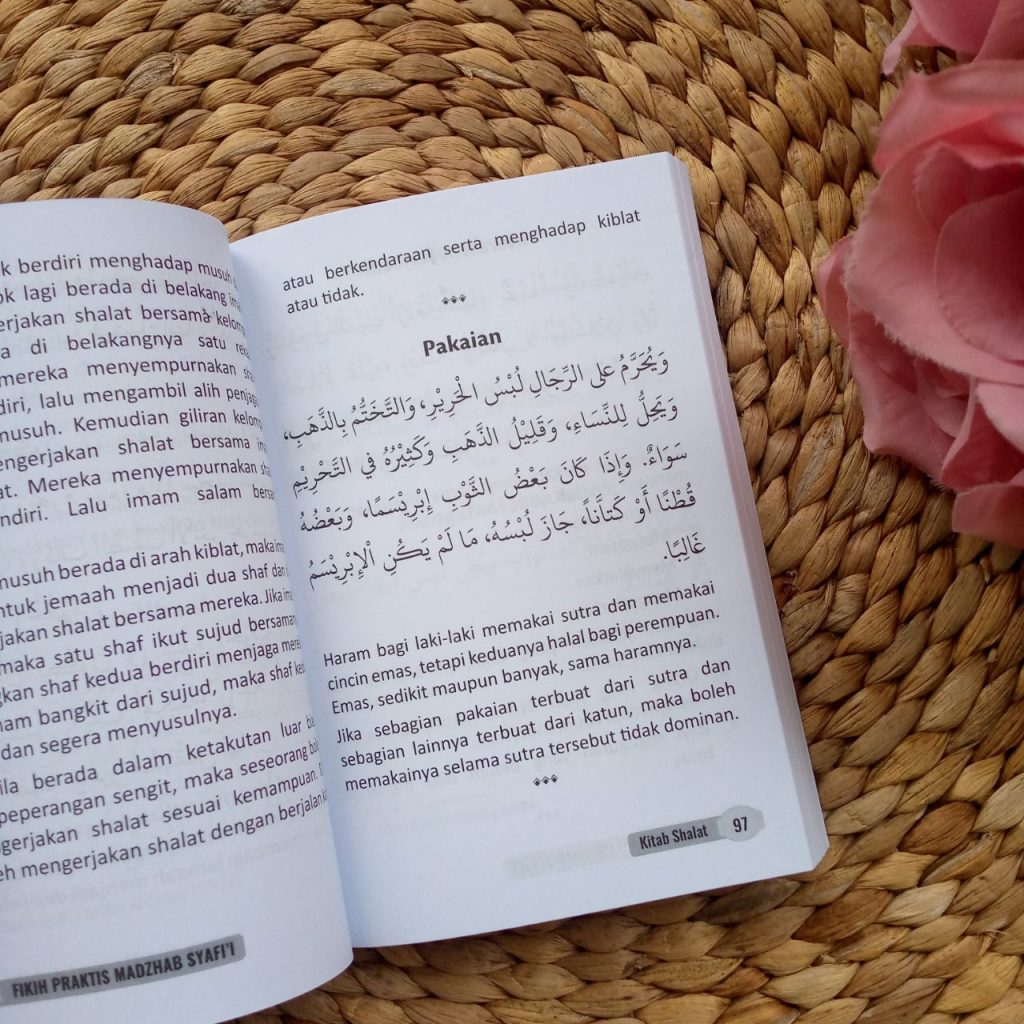 berdiri menghadap musuh
lagi berada di belakang
shalat bersama
di belakangnya satu
mereka menyempurnakan
lalu mengambil alih
Kemudian giliran
shalat bersama
Mereka menyempurnakan
Lalu imam salam
musuh berada di arah kiblat, maka
jemaah menjadi dua shaf dan
shalat bersama mereka. Jika
maka satu shaf ikut sujud
shaf kedua berdiri menjaga
bangkit dari sujud, maka shaf
dan segera menyusulnya.
berada dalam ketakutan luar
peperangan sengit, maka seseorang
shalat sesuai kemampuan.
mengerjakan shalat dengan berjalan
FIKIH PRAKTIS MADZHAB SYAFI'I
atau berkendaraan serta menghadap kiblat
atau tidak.
Pakaian
وَيُحَرَّمُ على الرِّجَالِ لُبْسُ الْحَرِيْرِ، وَالتَّخَتُّمُ بِالذَّهَبِ،
وَيَحِلُّ لِلنِّسَاءِ، وَقَلِيْلُ الذَّهَبِ وَكَثِيْرُهُ فِي التَّحْرِيْمِ
سَوَاءٌ. وَإِذَا كَانَ بَعْضُ الثَّوْبِ إِبْرِيْسَمًا، وَبَعْضُهُ
قُطْنًا أَوْ كَتَّانًا، جَازَ لُبْسُهُ، مَا لَمْ يَكُنِ الْإِبْرِيْسَمُ
غَالِبًا.
Haram bagi laki-laki memakai sutra dan memakai
cincin emas, tetapi keduanya halal bagi perempuan.
Emas, sedikit maupun banyak, sama haramnya.
Jika sebagian pakaian terbuat dari sutra dan
sebagian lainnya terbuat dari katun, maka boleh
memakainya selama sutra tersebut tidak dominan.
Kitab Shalat 97